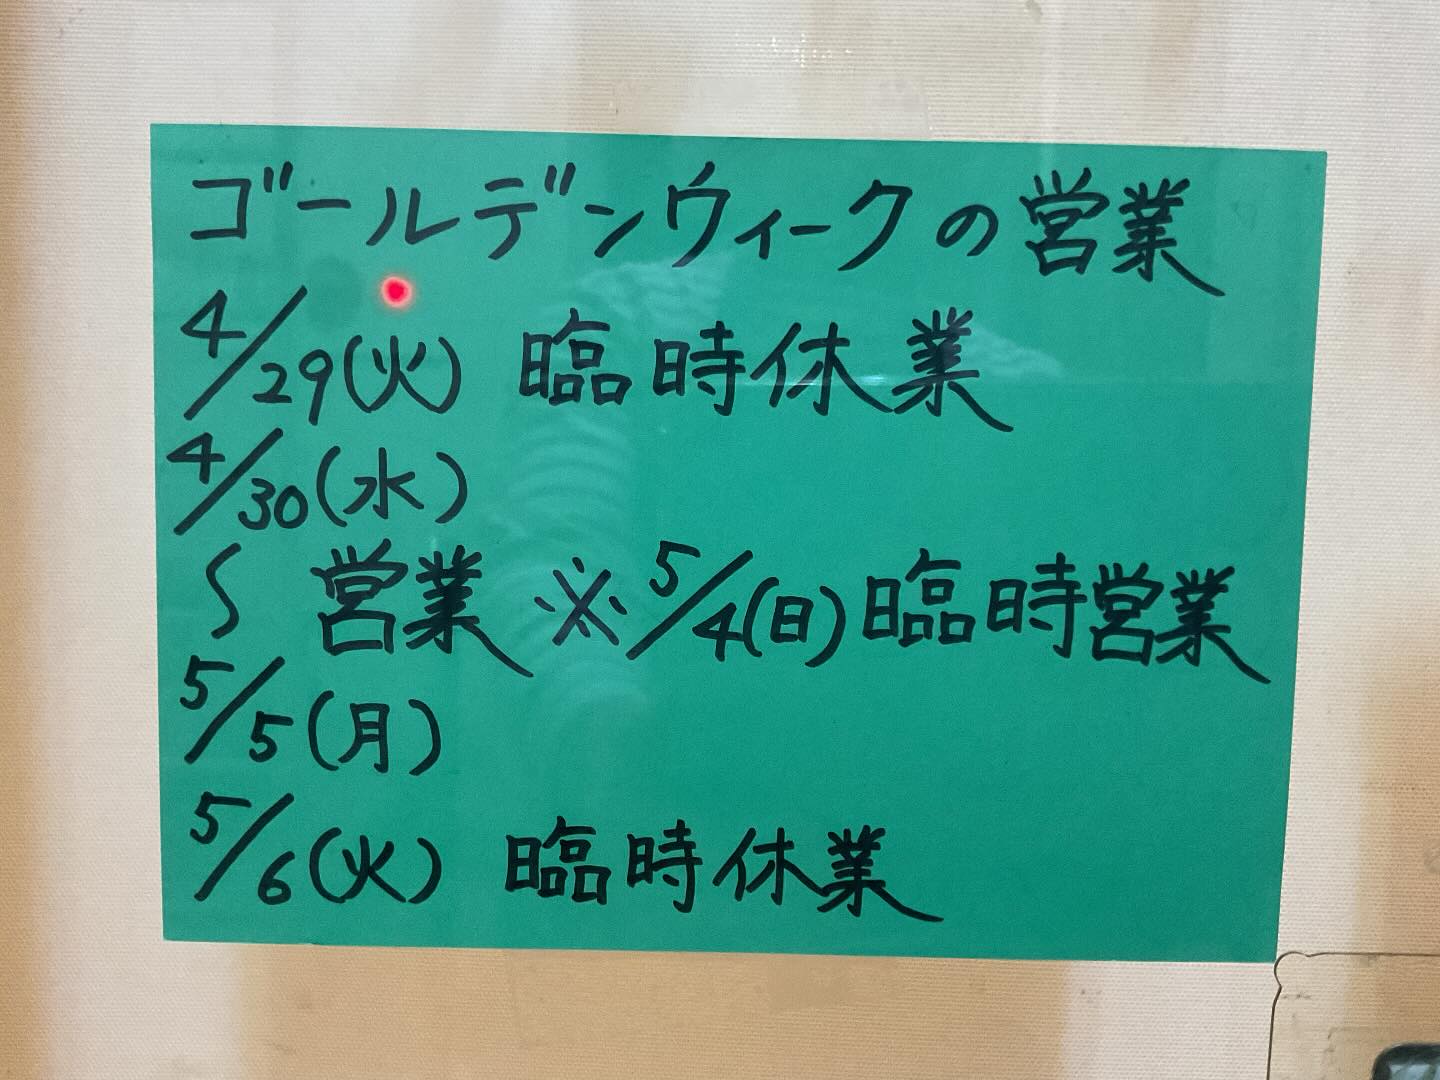 ゴールデンウィークの営業
4/29(火) 臨時休業
4/30(水)
〜 営業 ※5/4(日)臨時営業
5/5(月)
5/6(火) 臨時休業